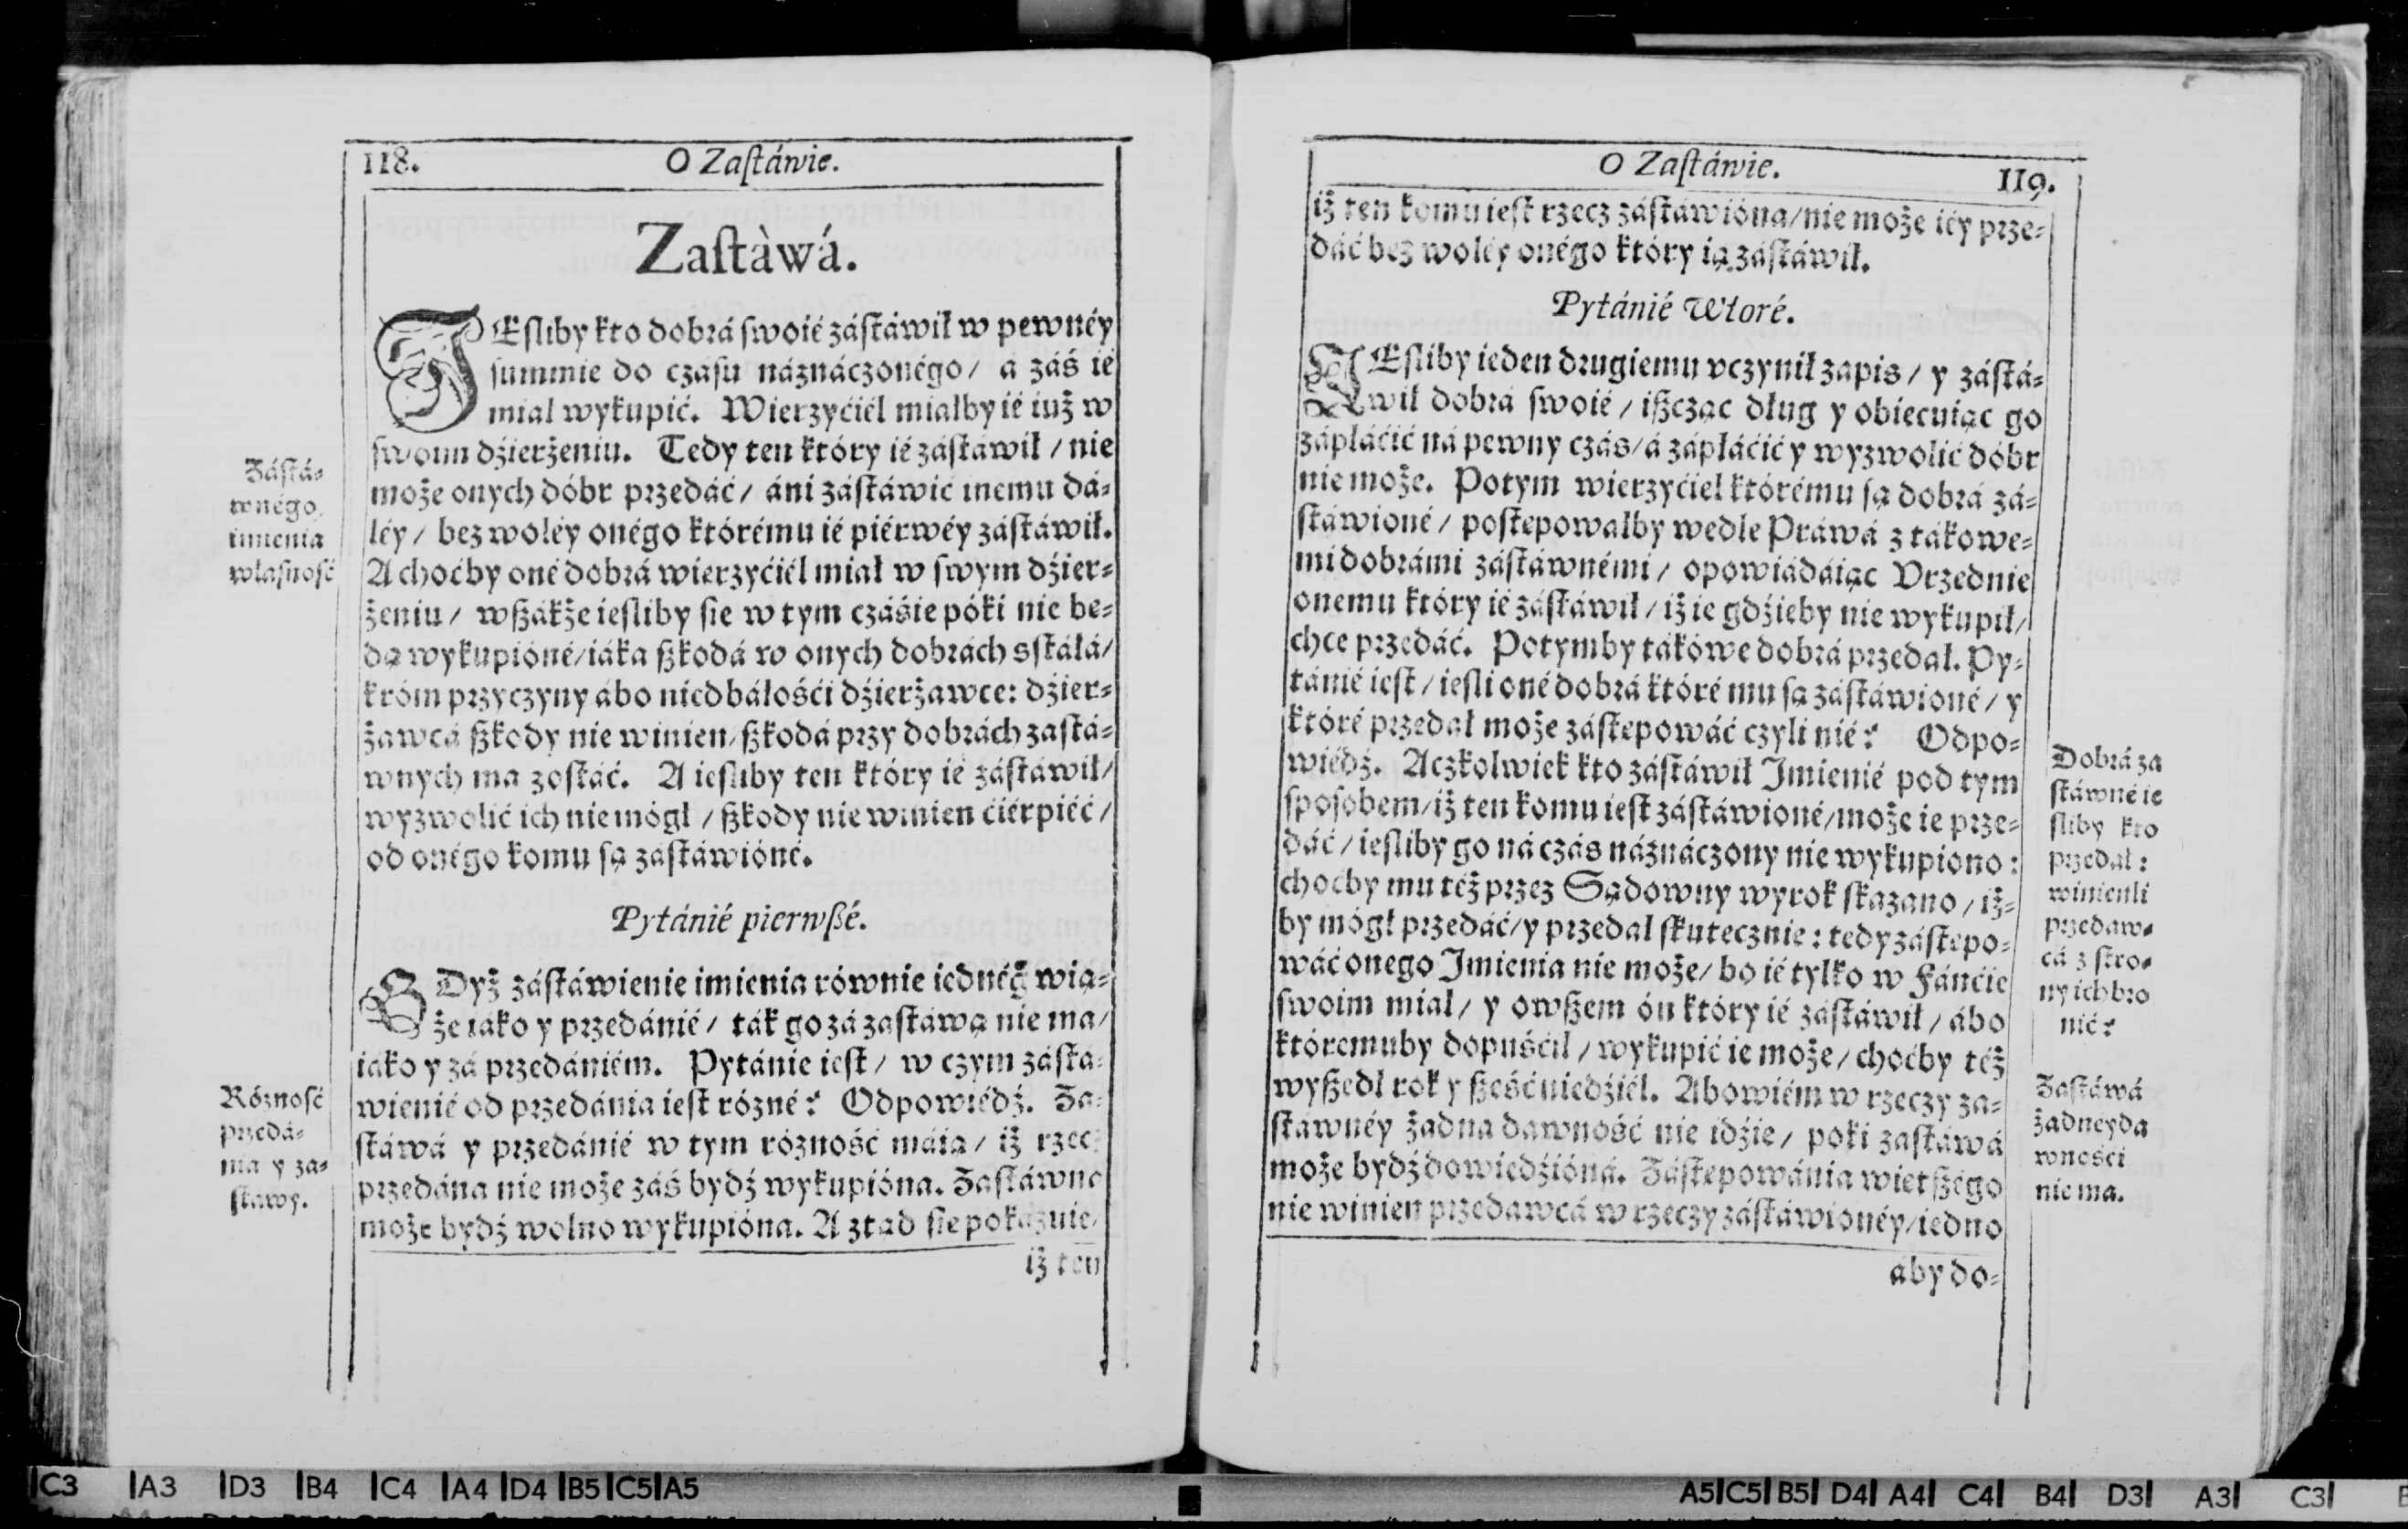 118.
O Zaſtáwie.
Zaſtàwá.
IEſliby kto dobrá ſwoié záſtáwił w pewnéy
ſummie do czáſu náználczonégo/ á záś ié
miał wykupić. Wierzyćiél miałby ié iuż w
ſwoim dźierżeniu. Tedy ten który ié záſtáwił / nie
może onych dóbr przedáć/ áni záſtáwić inemu dá-
léy/ bez woléy onégo którému ié piérwéy záſtáwił.
A choćby oné dobrá wierzyćiél miał w ſwym dźier-
żeniu/ wßákże ieſliby ſie w tym czáśie póki nie be-
dą wykupióné/iáka ßkodá w onych dobrách sſtáłá/
króm przyczyny ábo niedbáłośći dźierżawce: dźier-
żawcá ßkody nie winien/ßkodá przy dobrách zaſtá-
wnych ma zoſtáć. A ieſliby ten który ié záſtáwił/
wyzwolić ich nie mógł / ßkody nie winien ćiérpiéć/
od onégo komu ſą záſtáwióné.
Záſtá-
wnégo
imienia
własność
Pytánié pierwßé.
GDyż záſtáwienie imienia równie iednég̃ wią-
że iáko y przedánié/ ták go zá zaſtáwą nie ma/
iáko y zá przedániém. Pytánie ieſt/ w czym záſtá-
wienié od przedánia ieſt rózné? Odpowiédź. Za-
ſtáwá y przedánié w tym rózność máią/ iż rzecz
przedána nie może záś bydź wykupióna. Zaſtáwna
może bydź wolno wykupióna. A ztąd ſie pokázuie/
iż ten
Rózność
przedá-
nia y za-
ſtáwy.
O Zaſtáwie.
119.
iż ten komu ieſt rzecz záſtáwióna/nie może iéy prze-
dáć bez woléy onégo który ią záſtáwił.
Pytánié Wtoré.
IEſliby ieden drugiemu vczynił zapis/ y záſtá-
wił dobrá ſwoié/ ißcząc dług y obiecuiąc go
zápłáćić ná pewny czás/á zápłáćić y wyzwolić dóbr
nie może. Potym wierzyćiel którému ſą dobrá zá-
ſtáwioné/ poſtepowałby wedle Práwá z tákowe-
mi dobrámi záſtáwnémi/ opowiádáiąc Vrzednie
onemu który ié záſtáwił/iż ie gdźieby nie wykupił/
chce przedáć. Potymby tákówe dobrá przedał. Py-
tánié ieſt/ ieſli oné dobrá któré mu ſą záſtáwioné/ y
któré przedał może záſtepowáć czyli nié? Odpo-
wiédź. Aczkolwiek kto záſtáwił Imienié pod tym
ſpoſobem/iż ten komu ieſt záſtáwioné/może ie prze-
dáć/ ieſliby go ná czás náznáczony nie wykupiono:
choćby mu téż przez Sądowny wyrok ſkazano/ iż-
by mógł przedáć/y przedał ſkutecznie: tedy záſtepo-
wáć onego Imienia nie może/ bo ié tylko w Fánćie
ſwoim miał/ y owßem ón który ié záſtáwił/ ábo
któremuby dopuśćił/ wykupić ie może/ choćby téż
wyßedł rok y ßeść niedźiél. Abowiém w rzeczy za-
ſtáwnéy żadna dawność nie idźie/ poki zaſtáwá
może bydź dowiedźióná. Záſtepowánia wietßégo
nie winien przedawcá w rzeczy záſtáwionéy/iedno
áby do-
Dobrá za
ſtáwné ie
ſliby kto
przedał:
winienli
przedaw-
cá z ſtro-
ny ich bro
nić?
Zaſtáwá
żadnéy da
wnośći
nie ma.
C3 A3 D3 B4 C4 A4 D4 B5 C5 A5
A5 C5 B5 D4 A4 C4 B4 D3 A3 C3